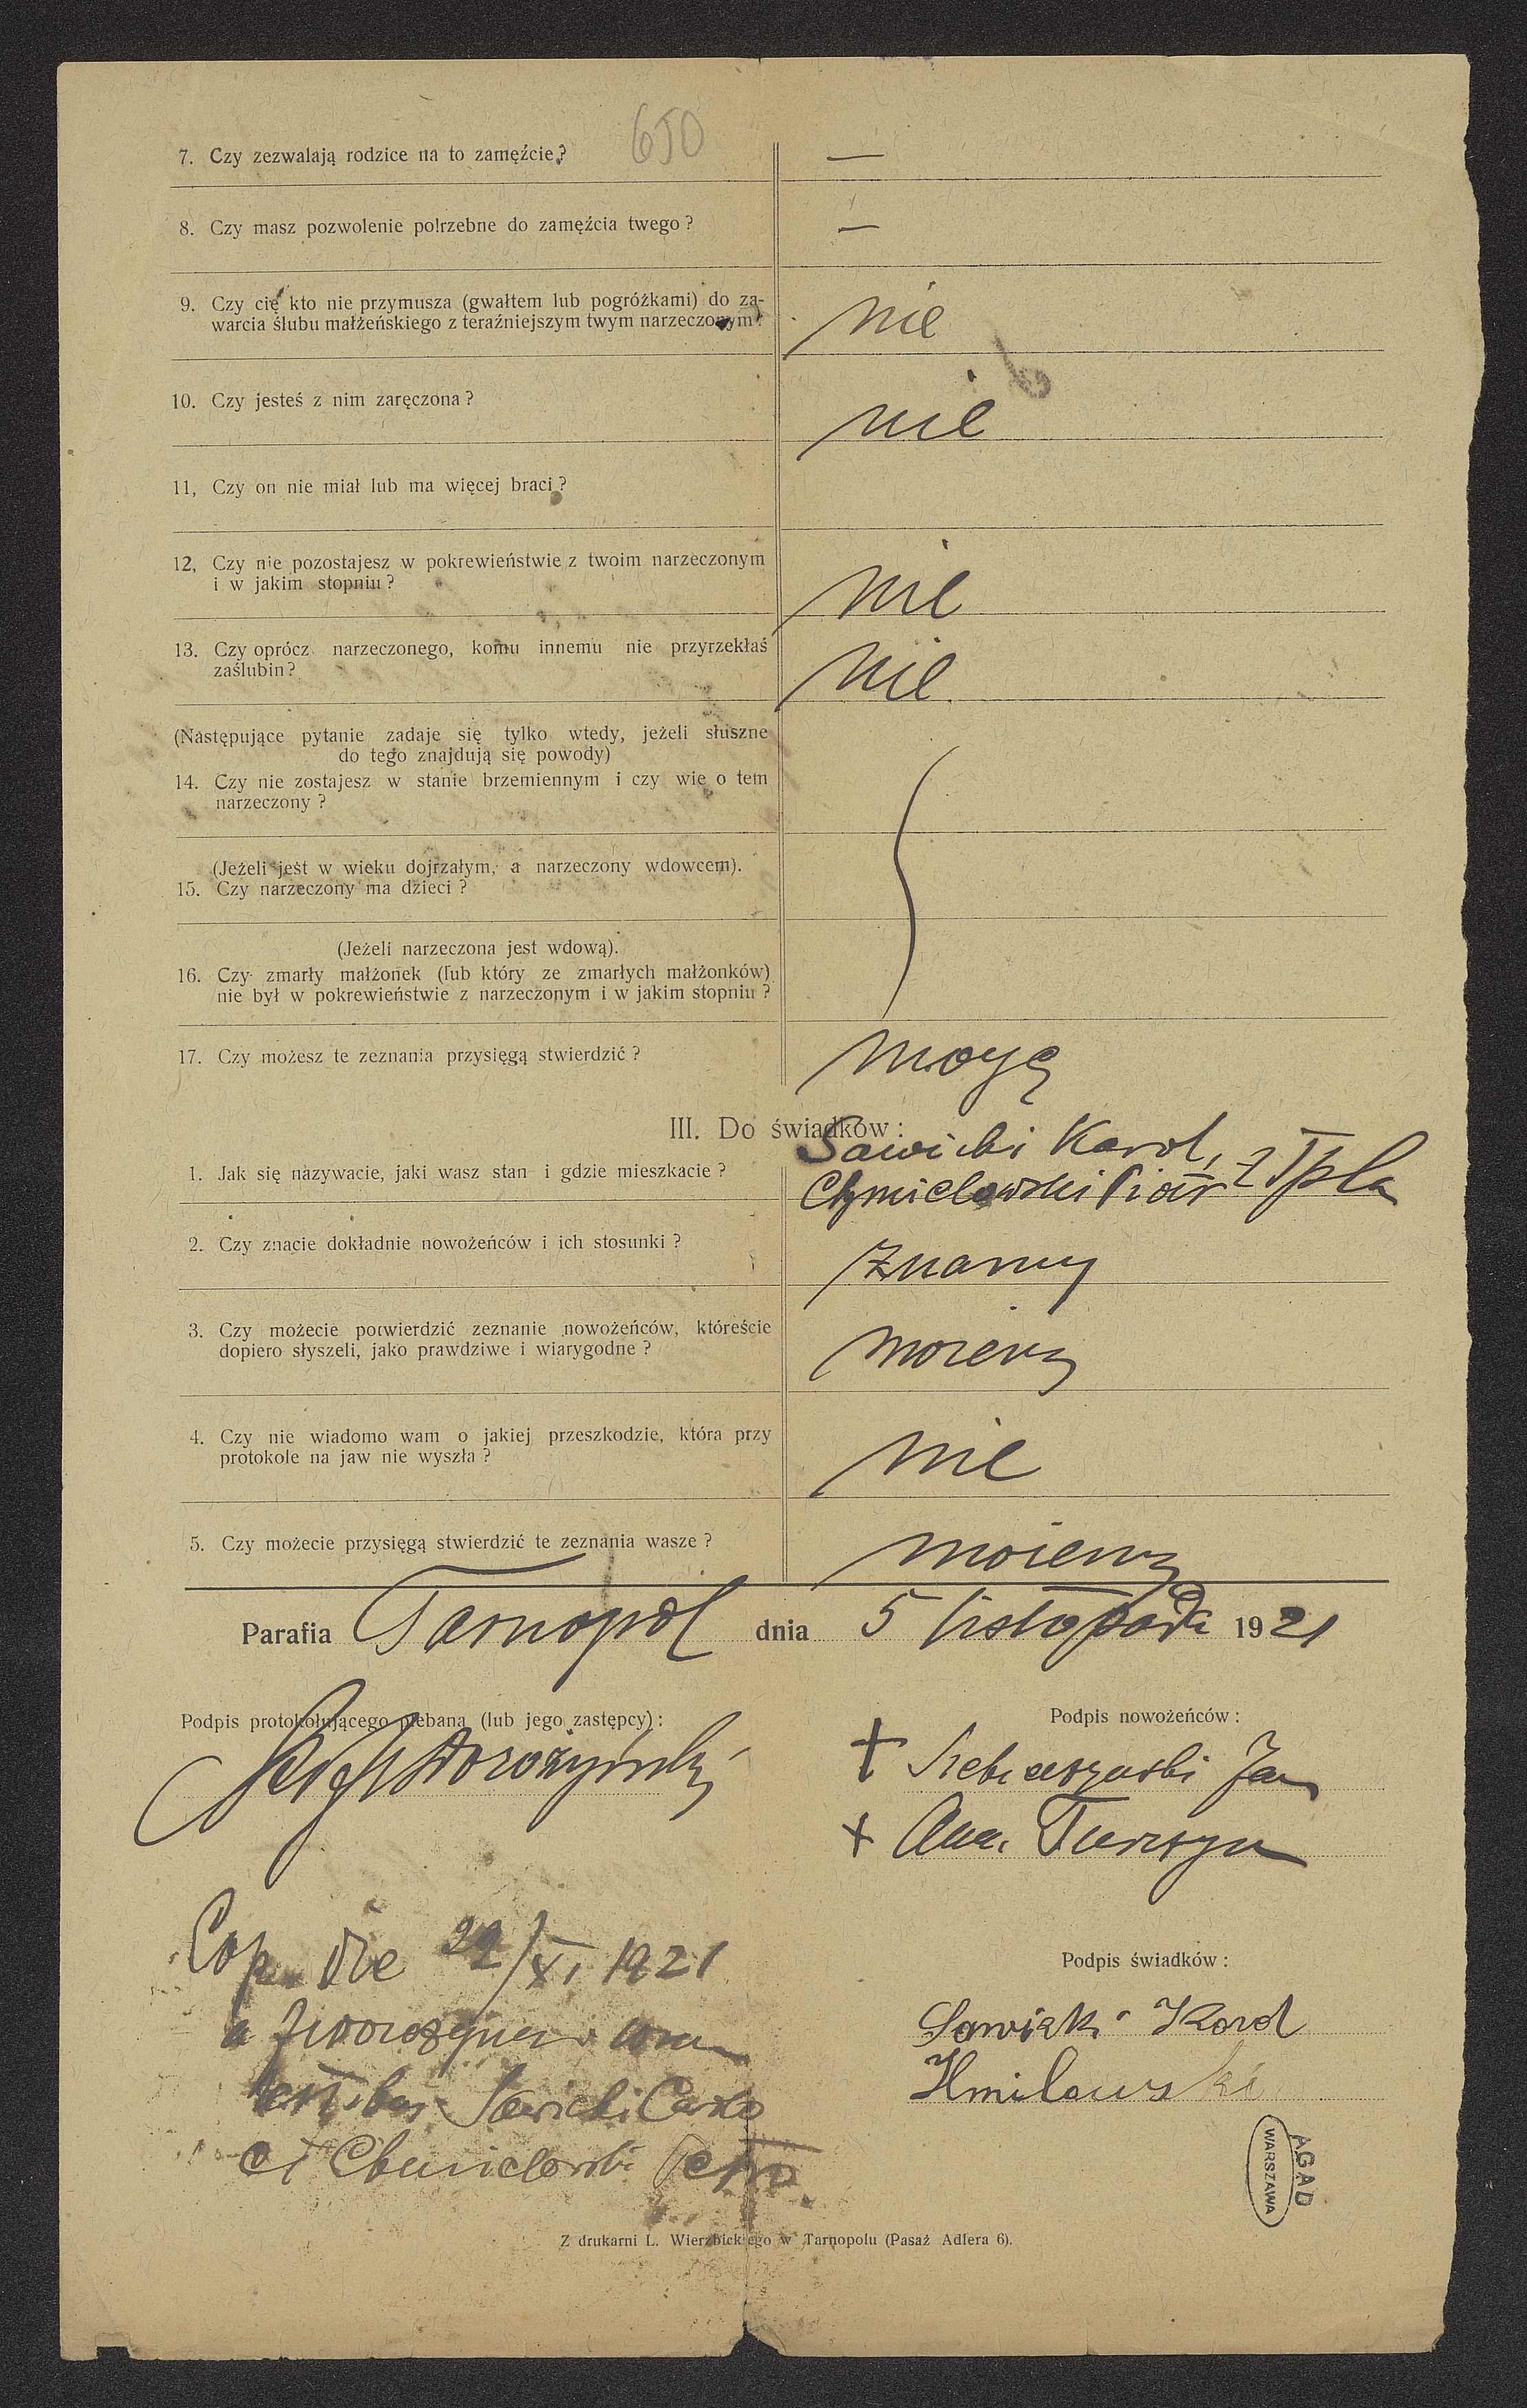 650
7. Czy zezwalają rodzice na to zamęźcie? —
8. Czy masz pozwolenie potrzebne do zamęźcia twego? —
9. Czy cię kto nie przymusza (gwałtem lub pogróżkami) do za-
warcia ślubu małżeńskiego z teraźniejszym twym narzeczonym? nie
10. Czy jesteś z nim zaręczona? nie
11, Czy on nie miał lub ma więcej braci?
12, Czy nie pozostajesz w pokrewieństwie z twoim narzeczonym
i w jakim stopniu? nie
13. Czy oprócz narzeczonego, komu innemu nie przyrzekłaś
zaślubin? nie
(Następujące pytanie zadaje się tylko wtedy, jeżeli słuszne
do tego znajdują się powody)
14. Czy nie zostajesz w stanie brzemiennym i czy wie o tem
narzeczony?
(Jeżeli jest w wieku dojrzałym, a narzeczony wdowcem).
15. Czy narzeczony ma dzieci?
(Jeżeli narzeczona jest wdową).
16. Czy zmarły małżonek (lub który ze zmarłych małżonków)
nie był w pokrewieństwie z narzeczonym i w jakim stopniu?
17. Czy możesz te zeznania przysięgą stwierdzić? mogę
III. Do świadków:
Sawicki Karol,
1. Jak się nazywacie, jaki wasz stan i gdzie mieszkacie? Chmielowski Piotr z Tpla
2. Czy znacie dokładnie nowożeńców i ich stosunki? znamy
3. Czy możecie potwierdzić zeznanie nowożeńców, któreście
dopiero słyszeli, jako prawdziwe i wiarygodne? możemy
4. Czy nie wiadomo wam o jakiej przeszkodzie, która przy
protokole na jaw nie wyszła? nie
5. Czy możecie przysięgą stwierdzić te zeznania wasze? możemy
Parafia Tarnopol dnia 5 listopada 1921
Podpis protokołującego plebana (lub jego zastępcy):
Podpis nowożeńców:
+ Jan
+ Anna
Cop. die 22/XI 1921
a
testibus Sawicki Carolo
et Chmielowski Petro
Podpis świadków:
Sawicki Karol
Hmilowski
AGAD
WARSZAWA
Z drukarni L. Wierzbickiego w Tarnopolu (Pasaż Adlera 6).